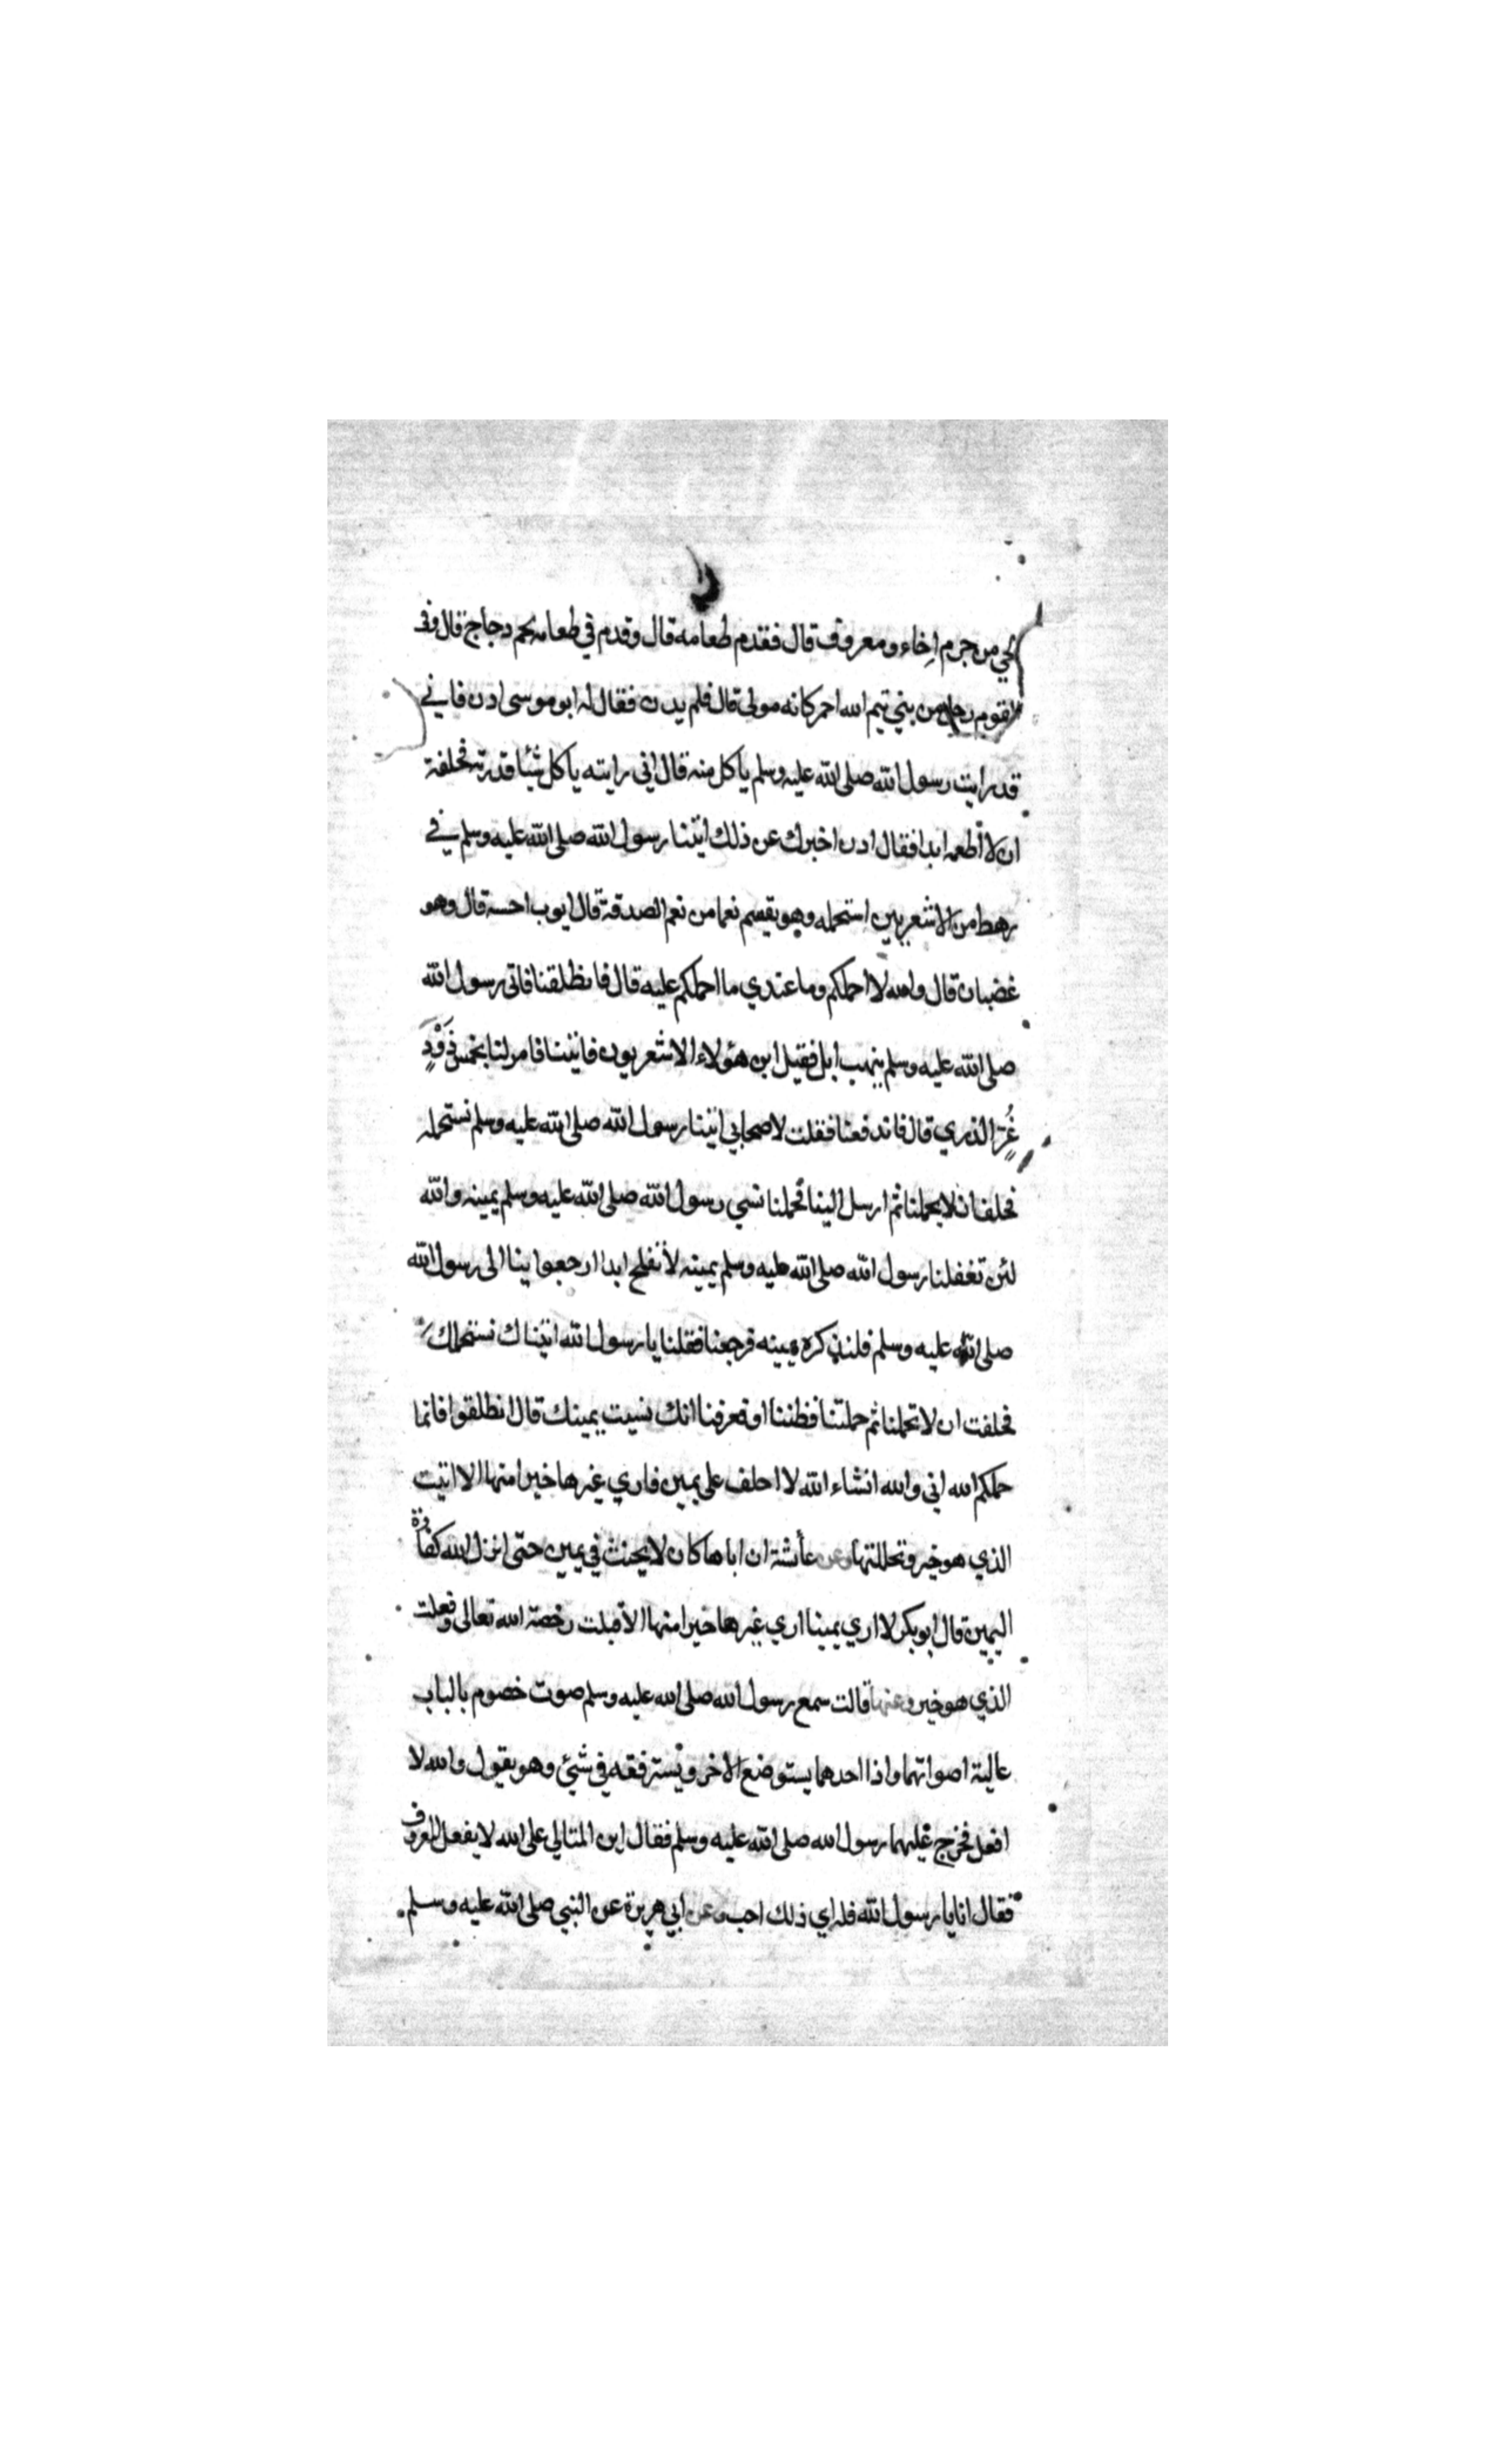 الحي من جرم إخاء ومعروف قال فقدم طعامه قال وقدم في طعامه لحم دجاج قال وفي
القوم رجل من بني تيم الله احمر كانه مولى قال فلم يدن فقال له ابو موسى ادن فاني
قد رايت رسول الله صلى الله عليه وسلم ياكل منه قال اني رايته ياكل شيئا قذرته فحلفت
ان لا أطعمه ابدا فقال ادن اخبرك عن ذلك اتينا رسول الله صلى الله عليه وسلم في
رهط من الاشعريين استحمله وهو يقسم نعما من نعم الصدقة قال ايوب احسبه قال وهو
غضبان قال والله لا احملكم وما عندي ما احملكم عليه قال فانطلقنا فاتى رسول الله
صلى الله عليه وسلم بنهب ابل فقيل اين هؤلاء الاشعريون فاتينا فامر لنا بخمس ذَوْدٍ
غُرّ الذرى قال فاندفعنا فقلت لاصحابي اتينا رسول الله صلى الله عليه وسلم نستحمله
فحلف ان لا يحملنا ثم ارسل الينا فحملنا نسي رسول الله صلى الله عليه وسلم يمينه والله
لئن تغفلنا رسول الله صلى الله عليه وسلم يمينه لا نفلح ابدا ارجعوا بنا الى رسول الله
صلى الله عليه وسلم فلنذكره يمينه فرجعنا فقلنا يا رسول الله اتيناك نستحملك
فحلفت ان لا تحملنا ثم حملتنا فظننا او فعرفنا انك نسيت يمينك قال انطلقوا فانما
حملكم الله اني والله انشاء الله لا احلف على يمين فاري غيرها خيرا منها الا اتيت
الذي هو خير وتحللتها وعن عائشة ان اباها كان لا يحنث في يمين حتى انزل الله كفارة
اليمين قال ابو بكر لا اري يمينا اري غيرها خيرا منها الا قبلت رخصة الله تعالى وفعلت
الذي هو خير وعنها قالت سمع رسول الله صلى الله عليه وسلم صوت خصوم بالباب
عالية اصواتهما واذا احدهما يستوضع الاخر ويسترفقه في شيئ وهو يقول والله لا
افعل فخرج عليهما رسول الله صلى الله عليه وسلم فقال اين المتالي على الله لا يفعل المعروف
فقال انا يا رسول الله فله اي ذلك احب وعن ابي هريرة عن النبي صلى الله عليه وسلم